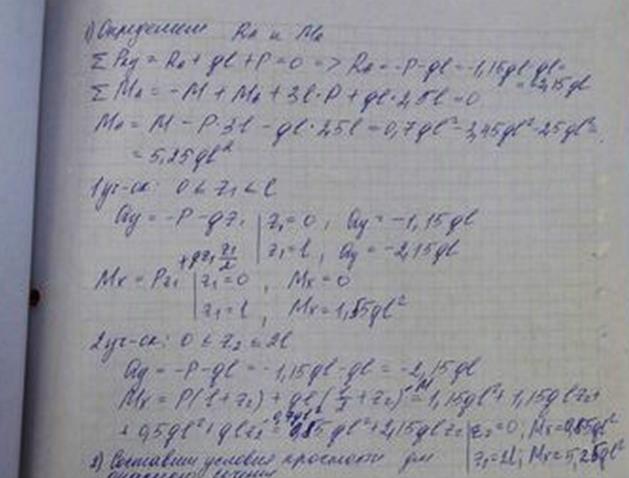 1) Определяем Rₐ и Mₐ
ΣPₑy = Rₐ + ql + P = 0 => Rₐ = -P - ql = -1,15ql - ql =
= -2,15ql
ΣMₐ = -M + Mₐ + 3l·P + ql·2,5l = 0
Mₐ = M - P·3l - ql·2,5l = 0,7ql² - 3,45ql² - 2,5ql² =
= 5,25ql²
1 уч-ок: 0 ≤ z₁ ≤ l
Qy = -P - qz₁ | z₁ = 0, Qy = -1,15ql
| z₁ = l, Qy = -2,15ql
Mx = Pz₁ +qz₁ z₁/2 | z₁ = 0, Mx = 0
| z₁ = l, Mx = 1,65ql²
2 уч-ок: 0 ≤ z₂ ≤ 2l
Qy = -P - ql = -1,15ql - ql = -2,15ql
Mx = P(l + z₂) + ql(l/2 + z₂) - M = 1,15ql² + 1,15qlz₂ +
+ 0,5ql² + qlz₂ - 0,7ql² = 0,95ql² + 2,15qlz₂ | z₂ = 0, Mx = 0,95ql²
| z₂ = 2l; Mx = 5,25ql²
2) Составим условия прочности для
сечения